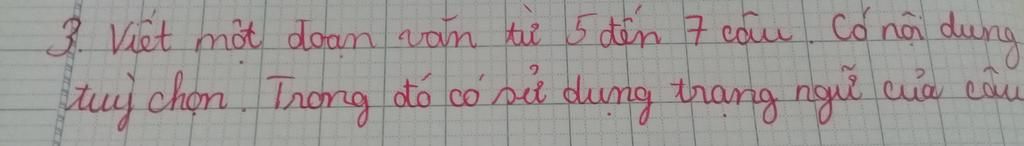 3. Viết một đoạn văn từ 5 đến 7 câu. Có nội dung
tuỳ chọn. Trong đó có sử dụng trạng ngữ của câu